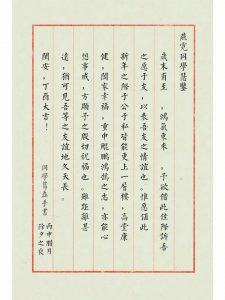 燕寬同學慧鑒
歲末甫至，鴻氣東來，予欲借此佳際訴吾
之愿于友，以表吾友之情誼也。惟愿值此
新年之際于公于私皆能更上一層樓，高堂康
健，闔家幸福，重申鯤鵬鴻鵠之志，亦能心
想事成，方顯予之殷切祝福也。雖距離甚
遠，猶可見吾等之友誼地久天長。
闔安，丁酉大吉！
同學舊燕手書
丙申腊月
除夕之夜